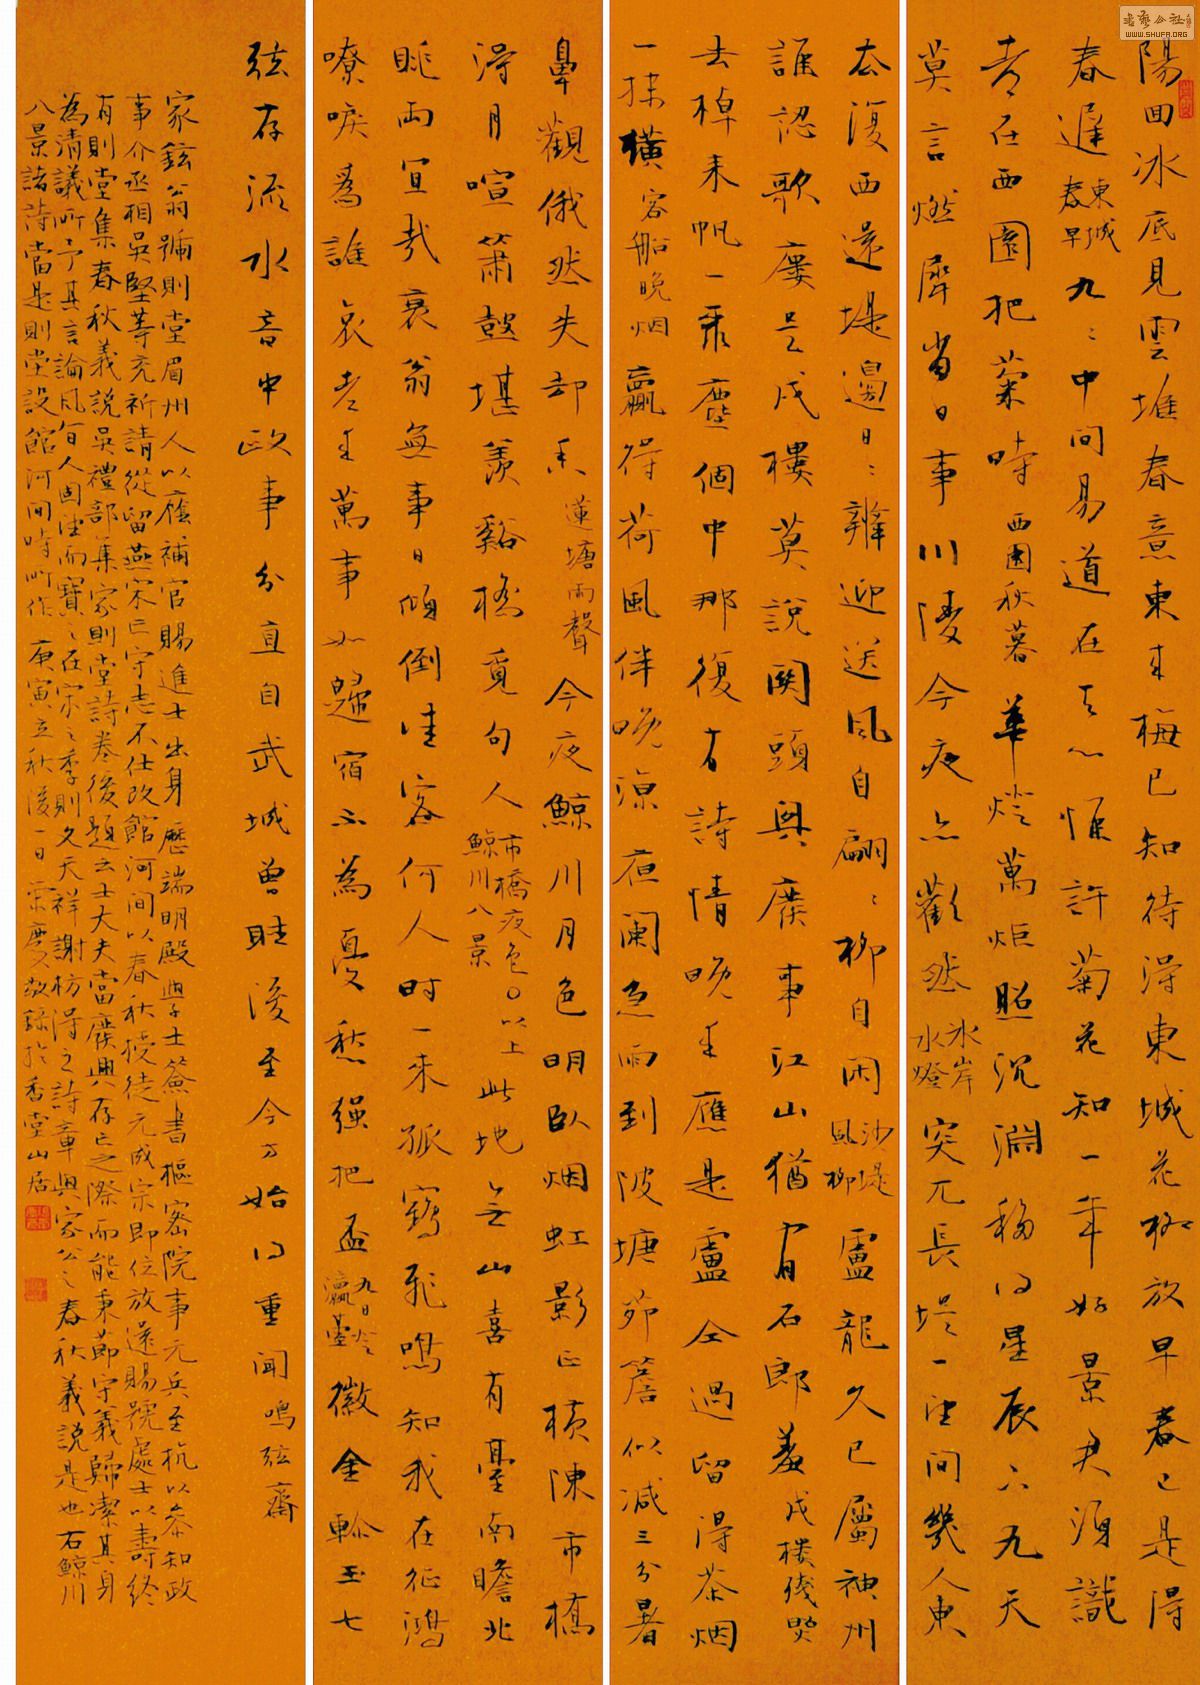 陽回冰底見雲堆春意東來梅已知待得東城花柳放早春已是得
春遲東城春早九〻中間易道在天心惟許菊花知一年好景君須識
都在西園把菊時西園秋暮華燈萬炬照沉淵移得星辰下九天
莫言燃犀當日事川陵今夜亦歡然水岸水燈突兀長堤一望間幾人東
去復西還堤邊日〻難迎送風自翩〻柳自閑沙堤風柳盧龍久已屬神州
誰認歌廢是戍樓莫說關頭興廢事江山猶有石郎羞戍樓殘照
去棹來帆一乘塵個中那復有詩情晚來應是盧仝過留得茶烟
一抹橫客船晚烟贏得荷風伴晚涼夜闌急雨到陂塘茆簷似減三分暑
鼻觀俄然失却香蓮塘雨聲今夜鯨川月色明臥烟虹影正橫陳市橋
得月喧簫鼓堪羨谿橋覓句人市橋夜色○以上鯨川八景此地無山喜有臺南瞻北
眺兩宜哉衰翁無事日傾倒佳客何人時一來孤鶴飛鳴知我在征鴻
嘹唳為誰哀老來萬事如歸宿不為憂愁強把盃九日登瀛臺徽金軫玉七
弦存流水音中政事分直自武城曾聽後至今方始得重聞鳴弦齋
家鉉翁號則堂眉州人以蔭補官賜進士出身歷端明殿學士簽書樞密院事元兵至杭以參知政
事介丞相吳堅等充祈請從留燕宋亡守志不仕改館河間以春秋授徒元成宗即位放還賜號處士以壽終
有則堂集春秋義說吳禮部集家則堂詩卷後題云士大夫當廢興存亡之際而能秉節守義歸潔其身
為清議所予其言論風旨人固望而寶〻在宋之季則文天祥謝枋得之詩章與家公之春秋義說是也右鯨川
八景諸詩當是則堂設館河間時所作庚寅立秋後一日宗慶敬錄於香堂山居
書藝公社
WWW.SHUFA.ORG